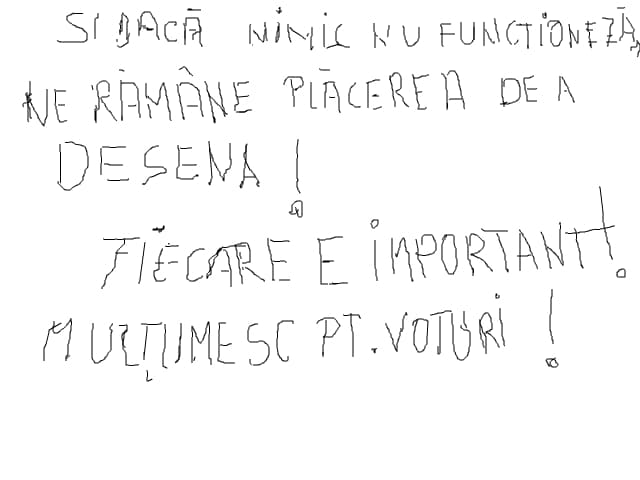 SI DACĂ NIMIC NU FUNCTIONEZĂ,
NE RĂMÂNE PLĂCEREA DE A
DESENA!
FIECARE E IMPORTANT!
MULȚUMESC PT. VOTURI!